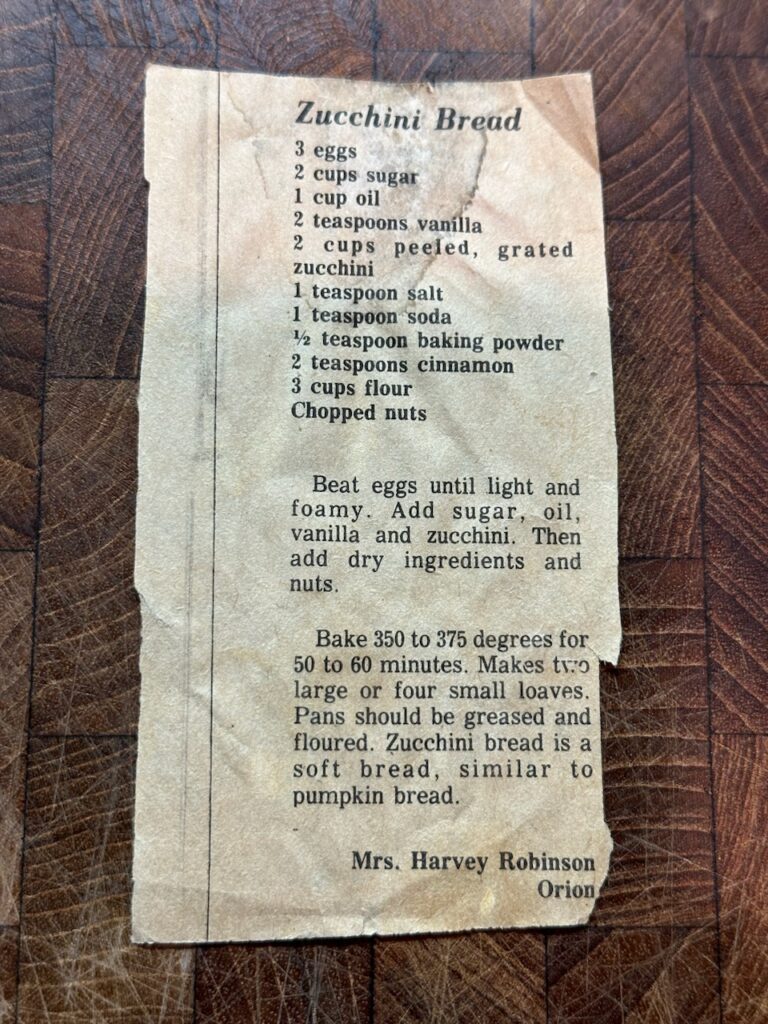 Zucchini Bread
3 eggs
2 cups sugar
1 cup oil
2 teaspoons vanilla
2 cups peeled, grated
zucchini
1 teaspoon salt
1 teaspoon soda
½ teaspoon baking powder
2 teaspoons cinnamon
3 cups flour
Chopped nuts
Beat eggs until light and
foamy. Add sugar, oil,
vanilla and zucchini. Then
add dry ingredients and
nuts.
Bake 350 to 375 degrees for
50 to 60 minutes. Makes two
large or four small loaves.
Pans should be greased and
floured. Zucchini bread is a
soft bread, similar to
pumpkin bread.
Mrs. Harvey Robinson
Orion